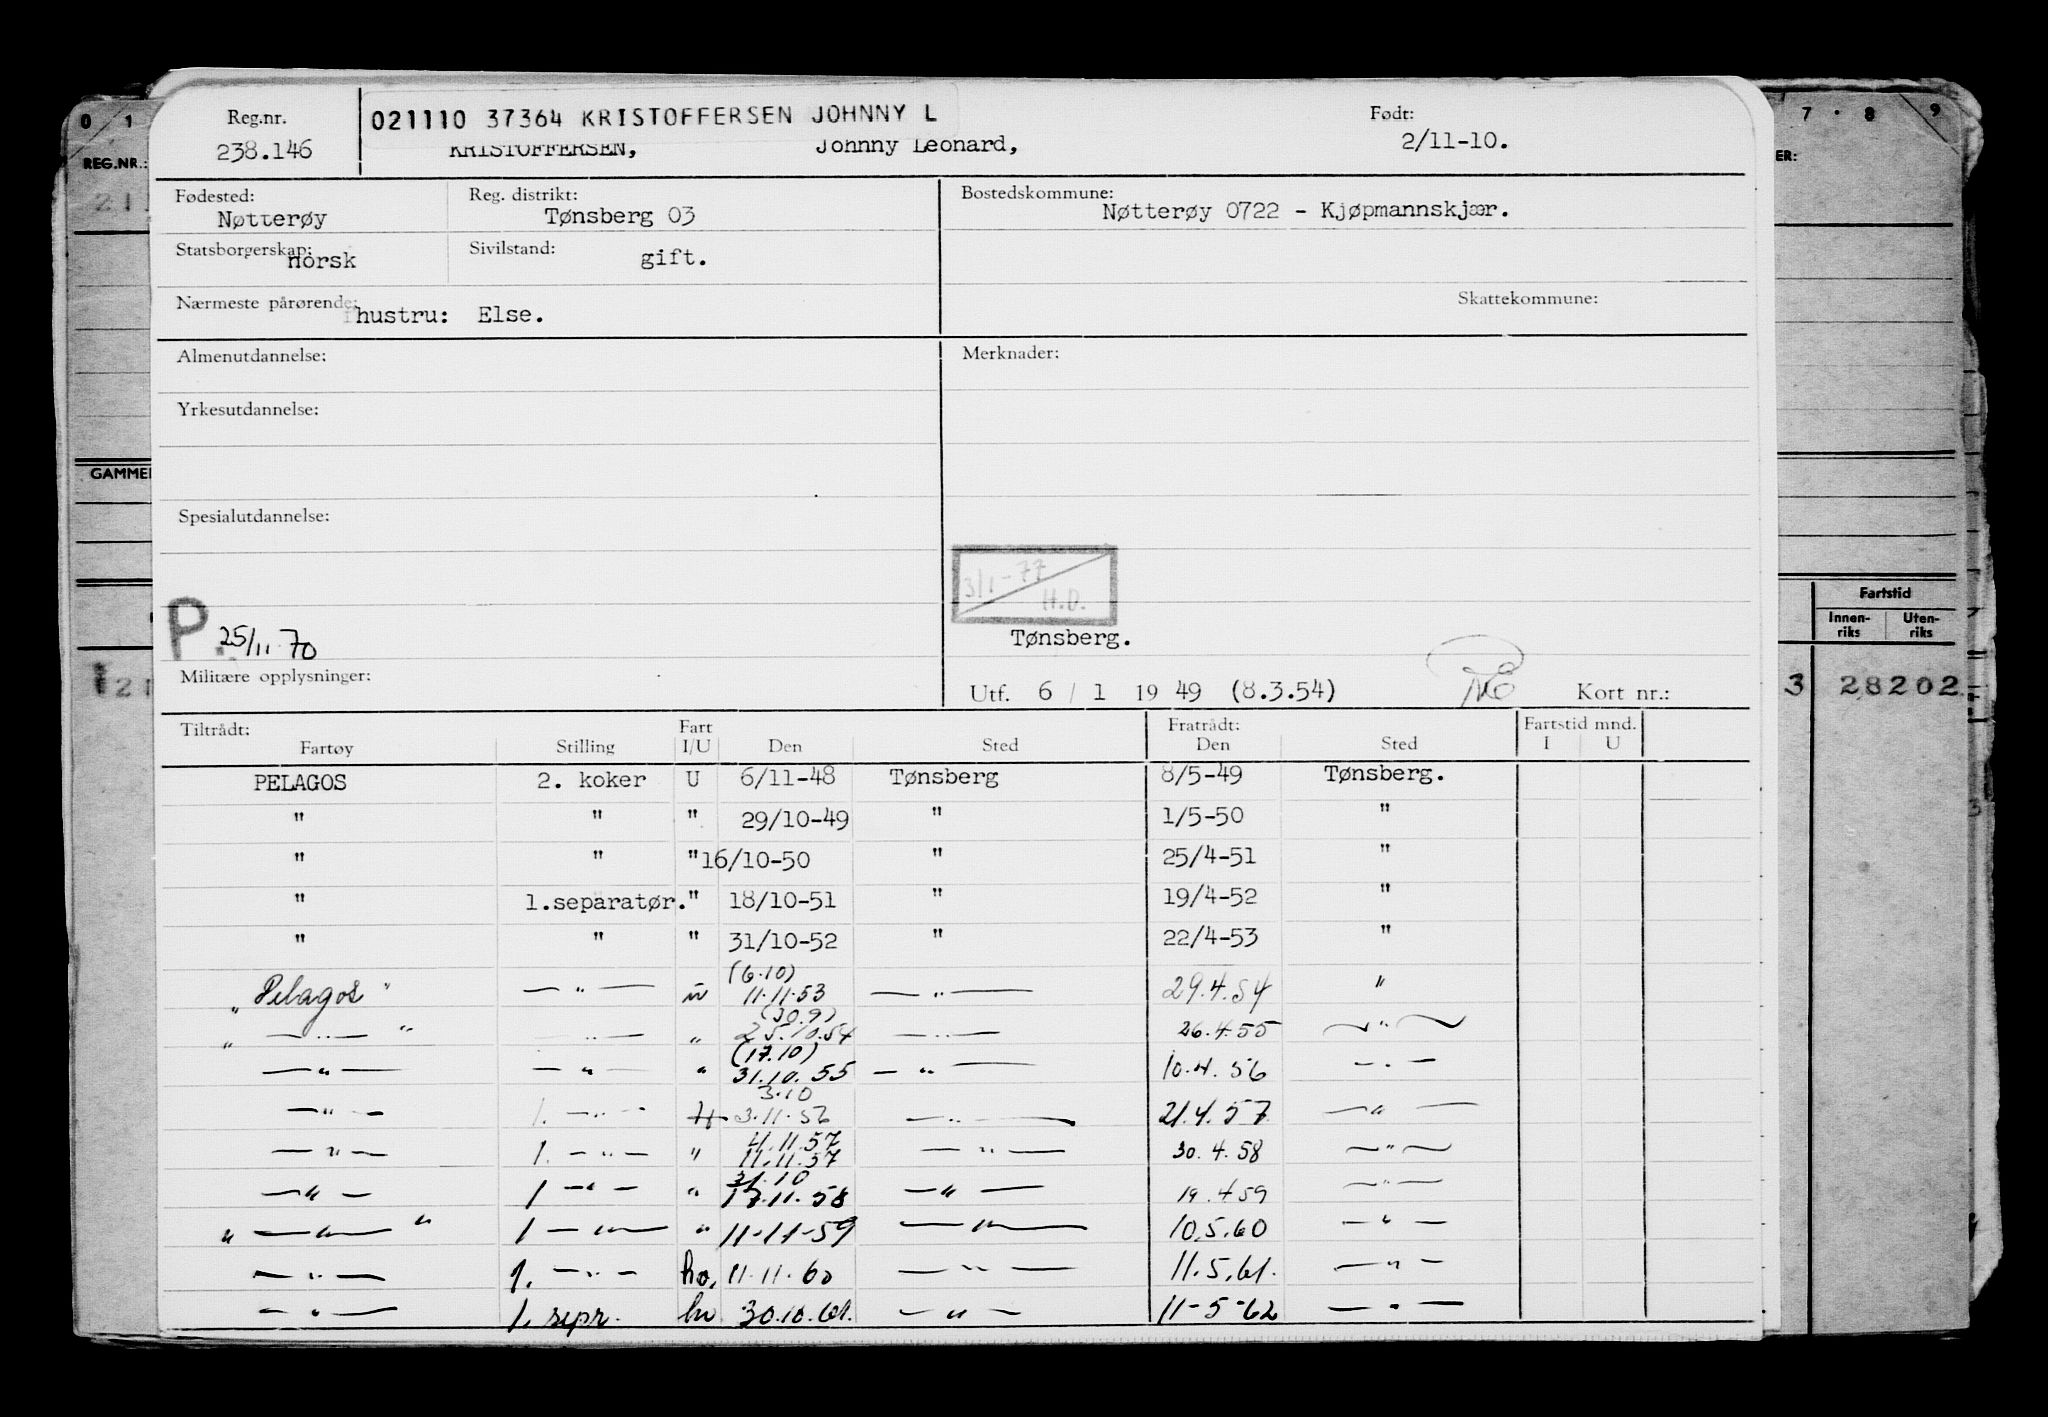 0 1
7 · 8 9
REG.NR.:
ER:
Reg.nr.
021110 37364 KRISTOFFERSEN JOHNNY L
Født:
238.146
KRISTOFFERSEN, Johnny Leonard,
2/11-10.
Fødested:
Nøtterøy
Reg. distrikt:
Tønsberg 03
Bostedskommune:
Nøtterøy 0722 - Kjøpmannskjær.
Statsborgerskap:
norsk
Sivilstand:
gift.
Nærmeste pårørende:
hustru: Else.
Skattekommune:
Almenutdannelse:
Merknader:
Yrkesutdannelse:
GAMMEL
Spesialutdannelse:
3/1-77
H.D.
Fartstid
Innen-riks
Uten-riks
P. 25/11 70
Tønsberg.
Militære opplysninger:
Utf. 6 / 1 19 49 (8.3.54)
Kort nr.:
3 28202
Tiltrådt:
Fartøy Stilling Fart I/U Den Sted
Fratrådt:
Den Sted
Fartstid mnd.
I U
PELAGOS 2. koker U 6/11-48 Tønsberg 8/5-49 Tønsberg.
" " " 29/10-49 " 1/5-50 "
" " " 16/10-50 " 25/4-51 "
" 1.separatør. " 18/10-51 " 19/4-52 "
" " " 31/10-52 " 22/4-53 "
(6.10)
"Pelagos" — " — " 11.11.53 — " — 29.4.54 "
(30.9)
" — " — " — " — " 25.10.54 — " — 26.4.55 — " —
(17.10)
— " — — " — " 31.10.55 — " — 10.4.56 — " —
3.10
— " — 1. — " — 3.11.56 — " — 21.4.57 — " —
4.11.57
— " — 1. — " — " 11.11.57 — " — 30.4.58 — " —
31.10
— " — 1 — " — " 17.11.58 — " — 19.4.59 — " —
" — " — " 1 — " — " 11-11-59 — " — 10.5.60 — " —
— " — 1. — " — ho, 11.11.60 — " — 11.5.61. — " —
— " — 1. sepr. hv 30.10.61. — " — 11-5-62 — " —